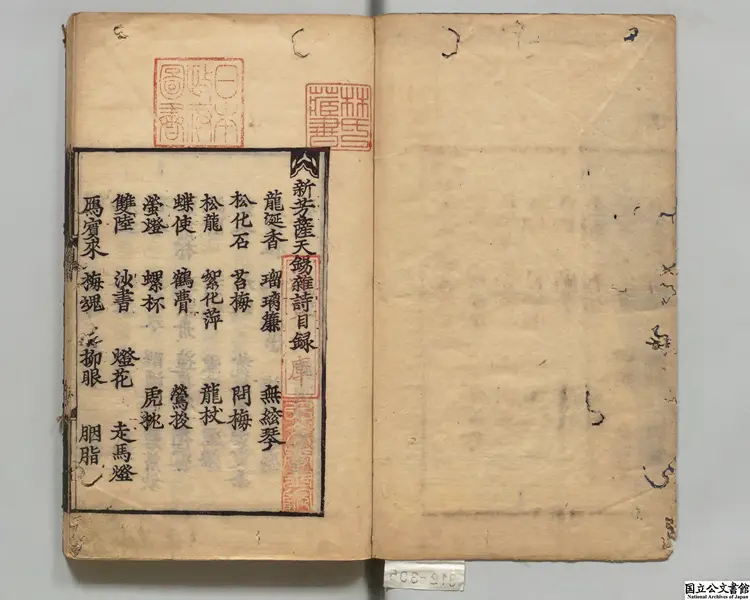 新芳薩天錫雜詩目錄
龍涎香 瑠璃簾 無絃琴
松化石 苔梅 問梅
松龍 絮化萍 龍杖
蝶使 鶴費 鶯梭
螢燈 螺杯 虎挑
雙陸 沙書 燈花 走馬燈
鴈賓來 梅魂 柳眼 胭脂
日本
政府
圖書
林氏
藏書
国立公文書館
National Archives of Japan